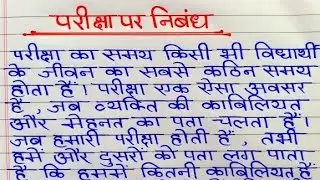 परीक्षा पर निबंध
परीक्षा का समय किसी भी विद्यार्थी
के जीवन का सबसे कठिन समय
होता हैं। परीक्षा एक ऐसा अवसर
हैं, जब व्यक्ति की काबिलियत
और मेहनत का पता चलता हैं।
जब हमारी परीक्षा होती हैं, तभी
हमें और दुसरों को पता लग पाता
हैं कि हममें कितनी काबिलियत हैं